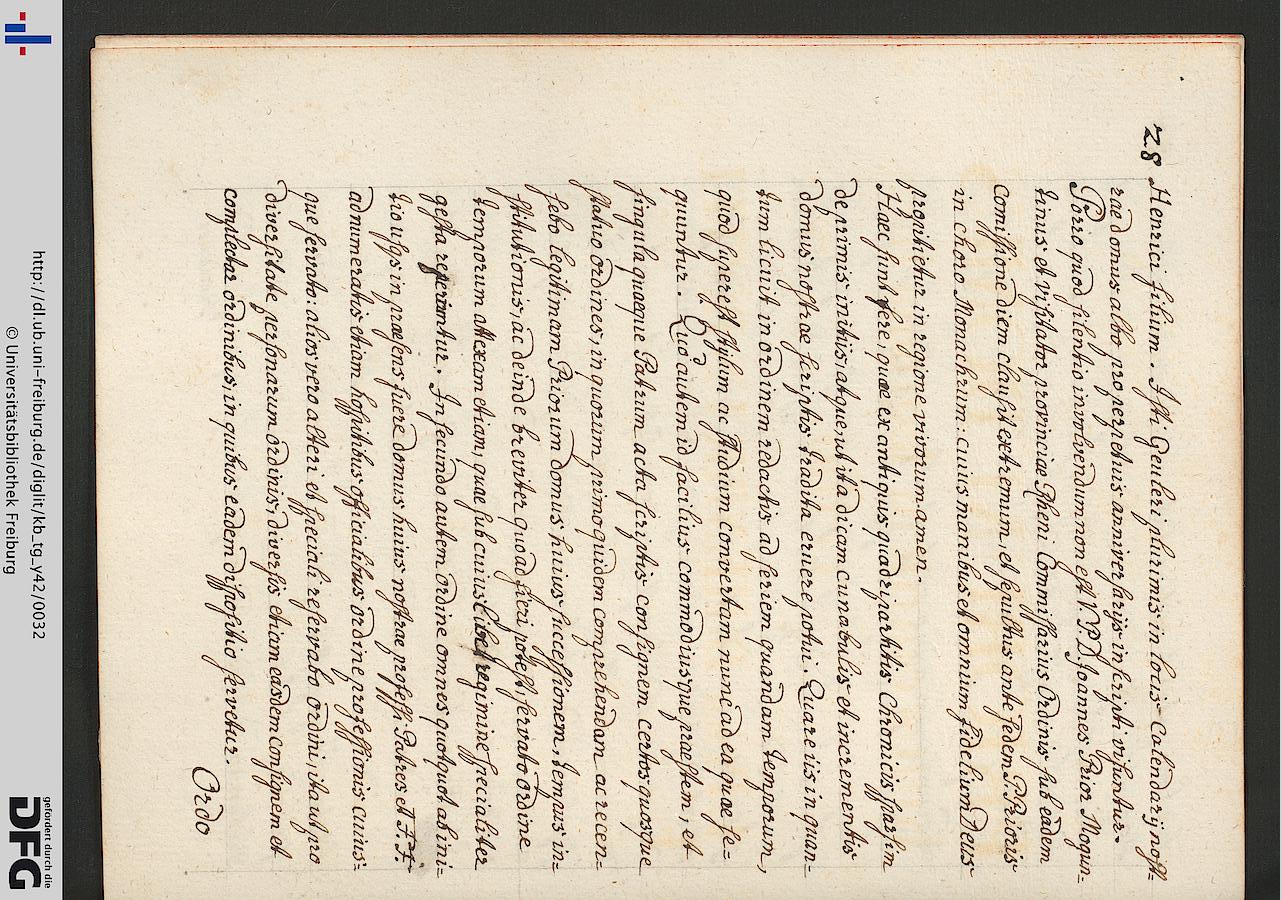 28
Henrici filium. Isti Geuleri plurimis in locis Calendarij nost-
rae domus albo pro perpetuis anniversarijs inscripti visuntur.
Porro quod silentio involvendum non est V. P. D. Joannes Prior Mogun=
tinus et Visitator provinciae Rheni Commissarius Ordinis sub eadem
Comissione diem clausit extremum et sepultus ante sedem P. Prioris
in choro Monachrum. cuius manibus et omnium fidelium Deus
propitietur in regione vivorum. amen.
Haec sunt fere, quae ex antiquis quadripartitis Chronicis sparsim
de primis initiis, atque ut ita dicam cunabulis et incrementis
domus nostrae scriptis tradita eruere potui. Quare iis in quan=
tum licuit in ordinem redactis ad seriem quandam temporum,
quod superest stylum ac studium convertam nunc ad ea quae se=
quuntur. Quo autem id facilius commodiusque praestem, et
singula quaeque Patrum acta scriptis consignem certos quosque
statuo ordines, in quorum primo quidem comprehendam ac recen=
sebo legitimam Priorum domus huius successionem, tempus in=
stitutionis, ac deinde breviter quoad fieri potest servato ordine
temporum Mexam etiam, quae sub cuius libet regimine specialiter
gesta reperiantur. In secundo autem ordine omnes quotquot ab ini=
tio usque in praesens fuere domus huius nostrae professi Patres et F.F.
adnumeratis etiam hospitibus officialibus ordine professionis cuius=
que servato: alios vero alteri et speciali reservabo ordini, ita ut pro
diversitate personarum ordinis, diversis etiam easdem consignem et
complectar ordinibus, in quibus eadem dispositio servetur.
Ordo
http://dl.ub.uni-freiburg.de/diglit/kb_tg_y42/0032
© Universitätsbibliothek Freiburg
gefördert durch die
DFG